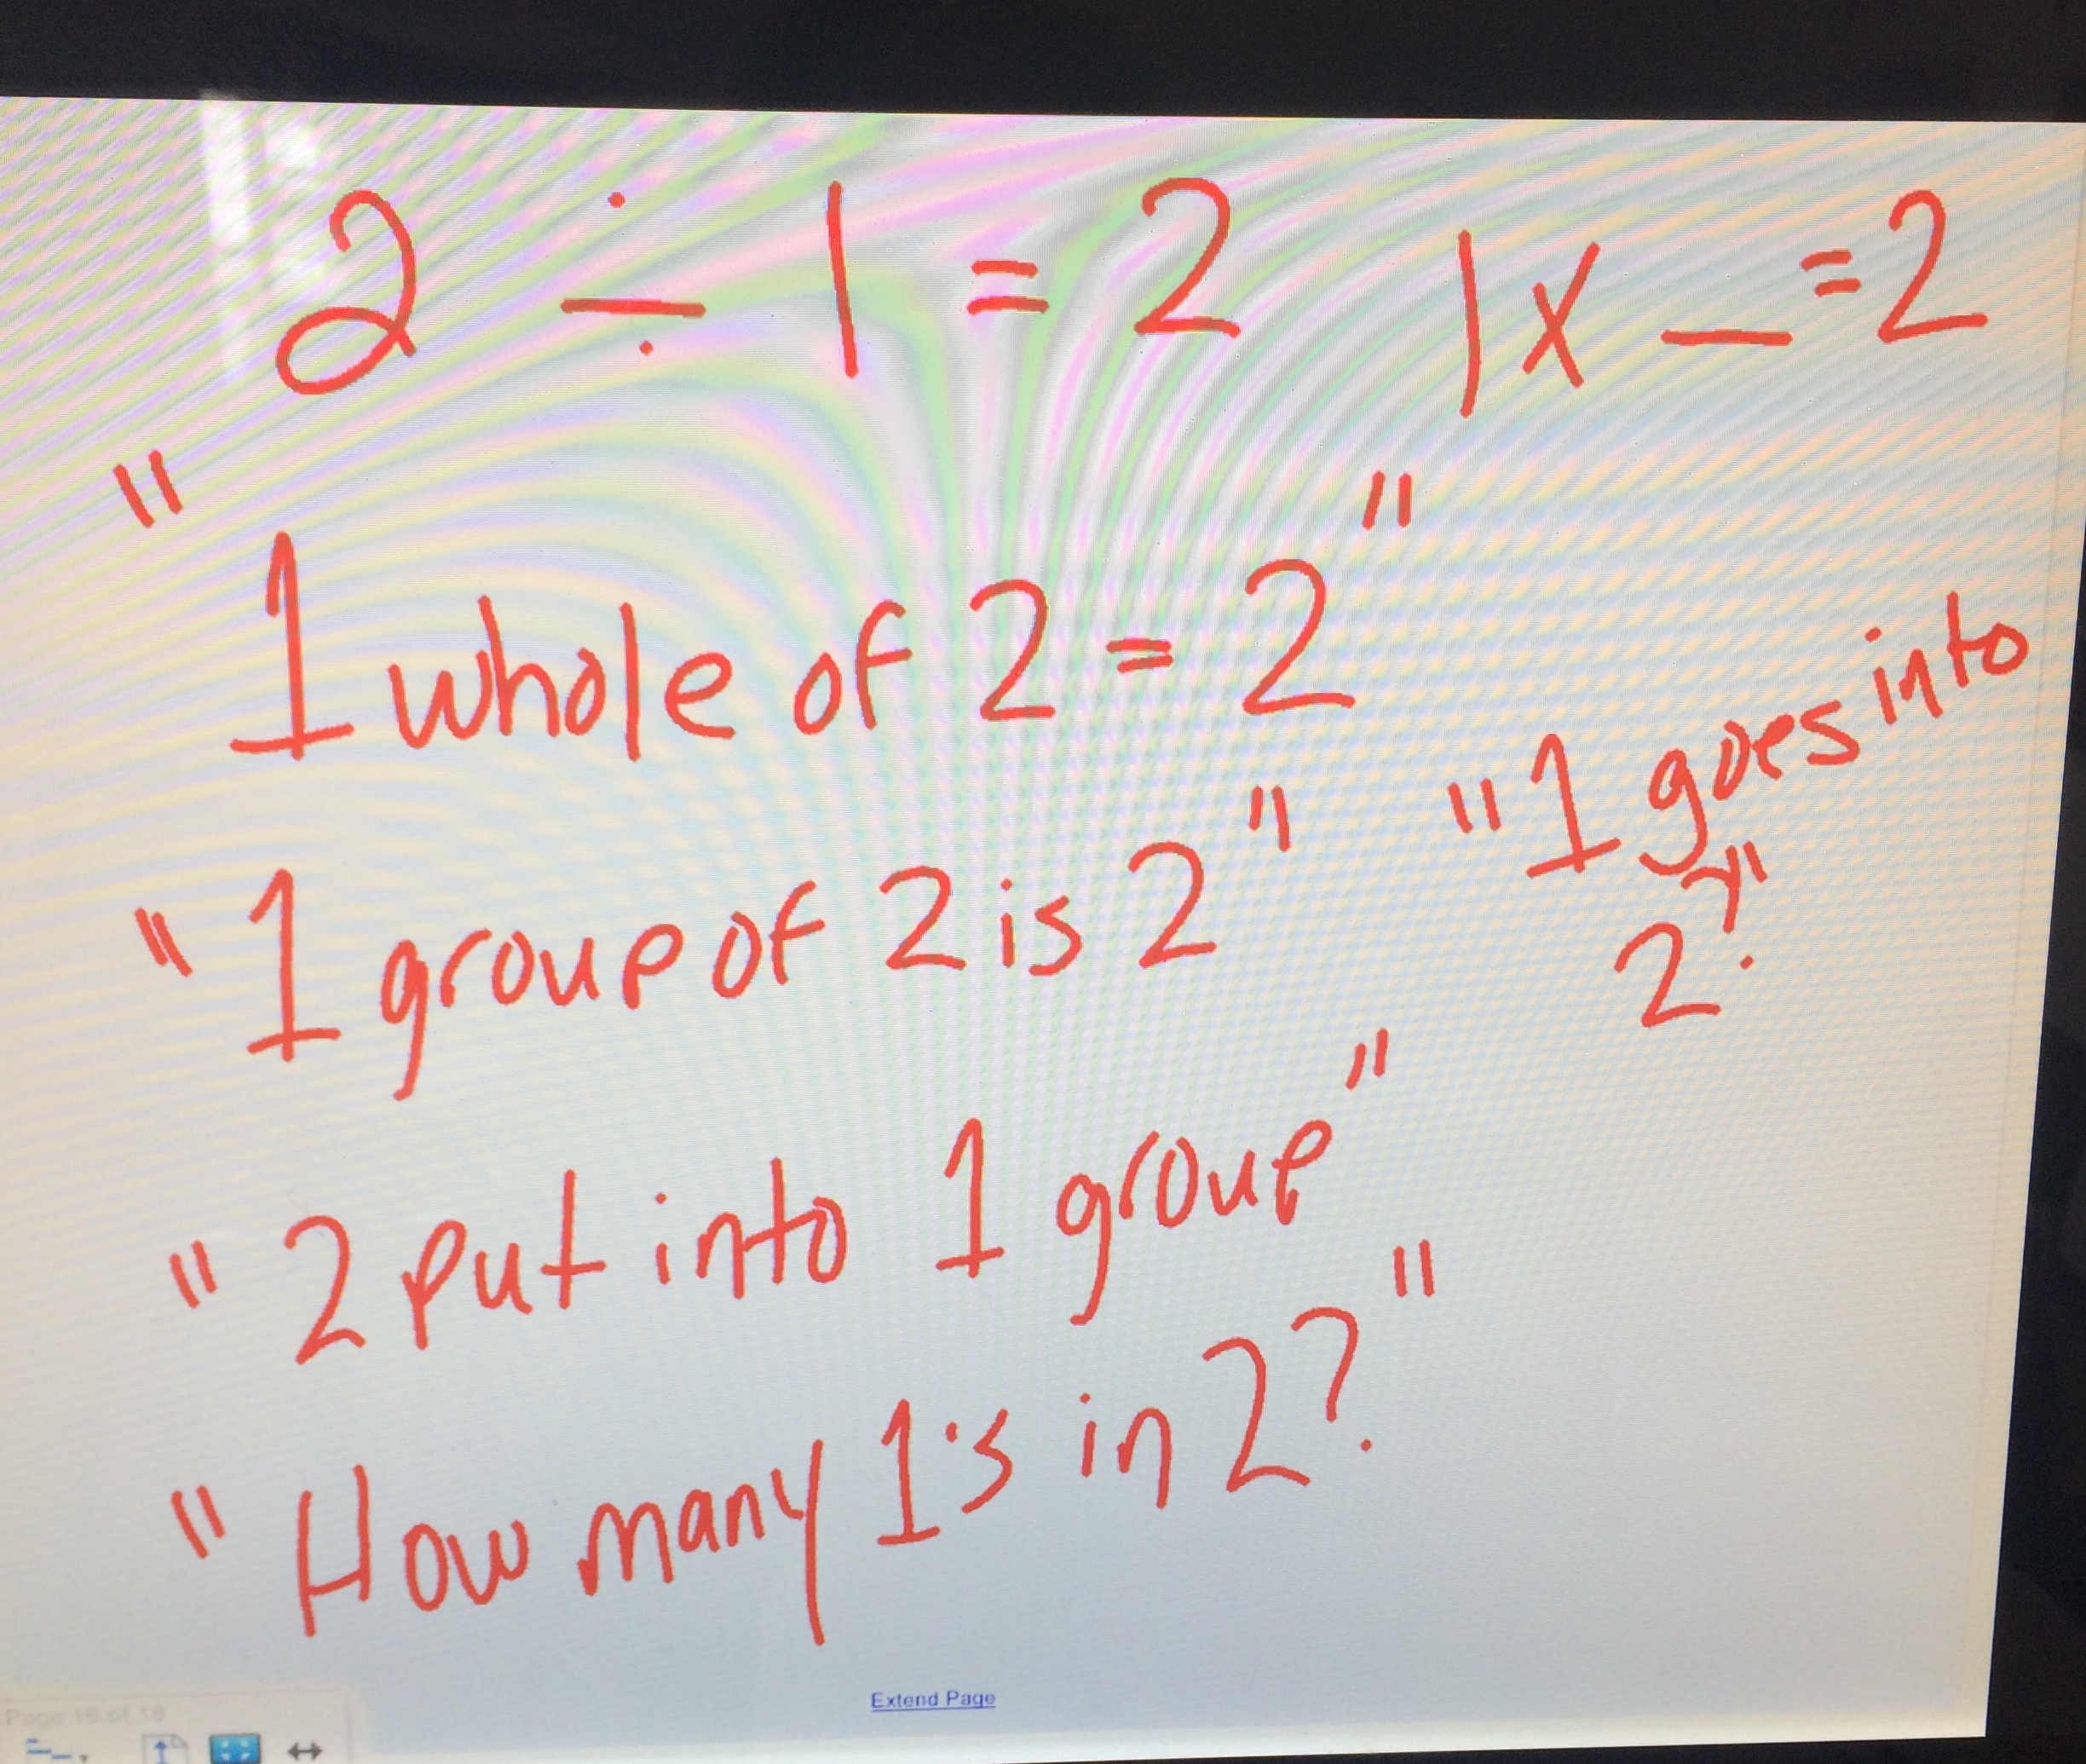 2 ÷ 1 = 2 1 x _ = 2
"1 whole of 2 = 2"
"1 goes into
2?"
"1 group of 2 is 2"
"2 put into 1 group"
"How many 1's in 2?"
Extend Page
Page 16 of 18